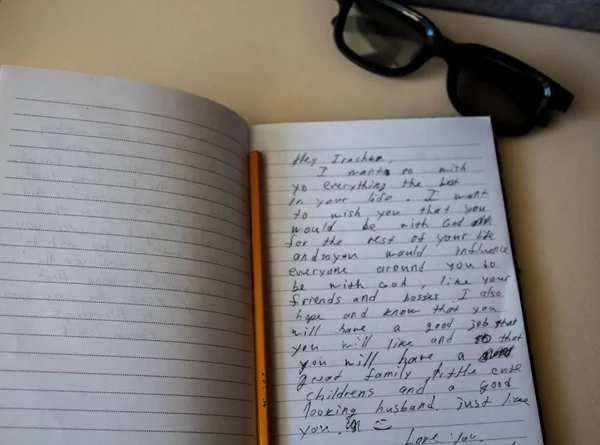 Hey Irachka,
I want to wish
yo everything the best
in your life. I want
to wish you that you
would be with God
for the rest of your life
and so you would influence
everyone around you to
be with God, like your
friends and bosses. I also
hope and know that you
will have a good job that
you will like and that
you will have a
great family, little cute
childrens and a good
looking husband. just like
you. :)
Love you